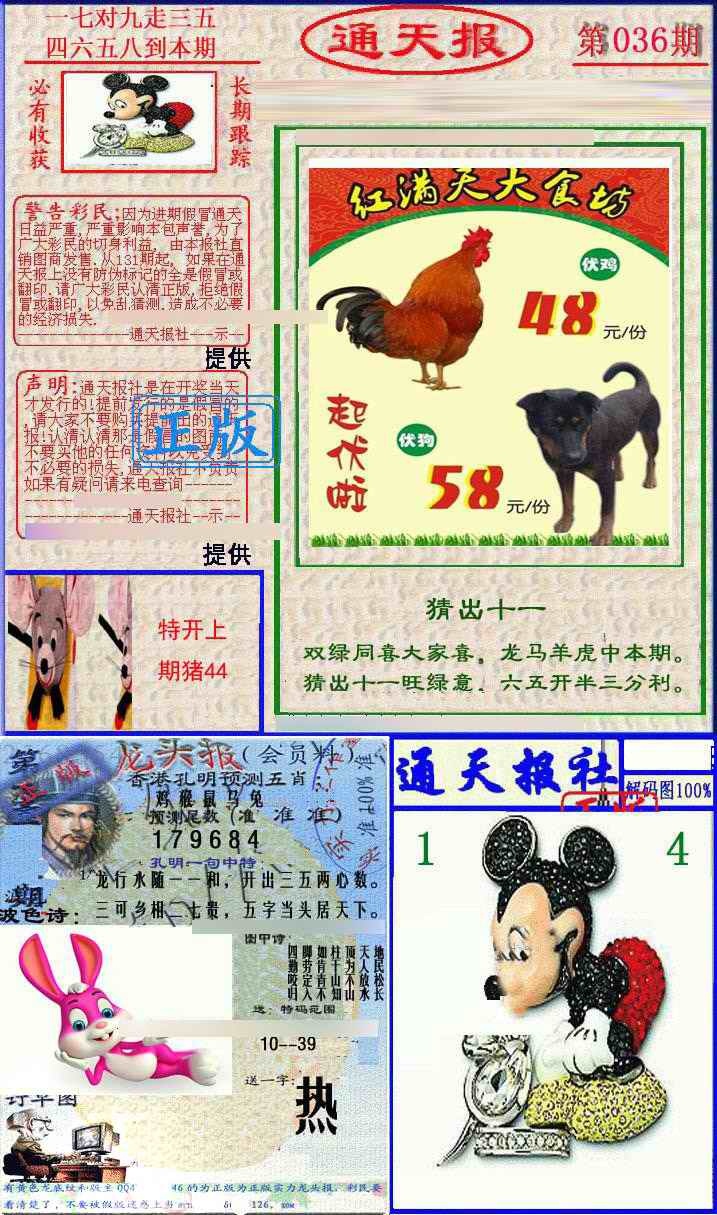 一七对九走三五
四六五八到本期
通天报
第036期
必有收获
长期跟踪
警告彩民:因为进期假冒通天
日益严重,严重影响本包声誉,为了
广大彩民的切身利益, 由本报社直
销图商发售.从131期起, 如果在通
天报上没有防伪标记的全是假冒或
翻印.请广大彩民认清正版,拒绝假
冒或翻印,以免乱猜测.造成不必要
的经济损失.
通天报社---示--
提供
声明:通天报社是在开奖当天
才发行的!提前发行的是假冒的
,请大家不要购
报!认清认清那是假冒的图
不要买他的任何
不必要的损失,通天报社不负责
如果有疑问请来电查询------
通天报社--示--
正版
提供
红满天大食坊
伏鸡
48元/份
起伏啦
伏狗
58元/份
猜出十一
双绿同喜大家喜。龙马羊虎中本期。
猜出十一旺绿意．六五开半三分利。
特开上
期猪44
第
期
龙头报(会员料)
香港孔明预测五肖
鸡猴鼠马兔
预测尾数(准 准 准)
179684
准100%准
孔明一句中特
龙行水随一一和，开出三五两心数。
三可乡相二七贵，五字当头居天下。
波色诗:
图中诗
地民松长
天人放水
顶为不山
柱干山知
如肯青不
脚劳定入
四勤咬归
送：特码范围
10--39
送一字:
热
有黄色龙底纹和版主QQ4 46的为正版为正版实力龙头报，彩民要
看清楚了，不要被假版迷惑上当 126，
通天报社
解码图100%
1
4